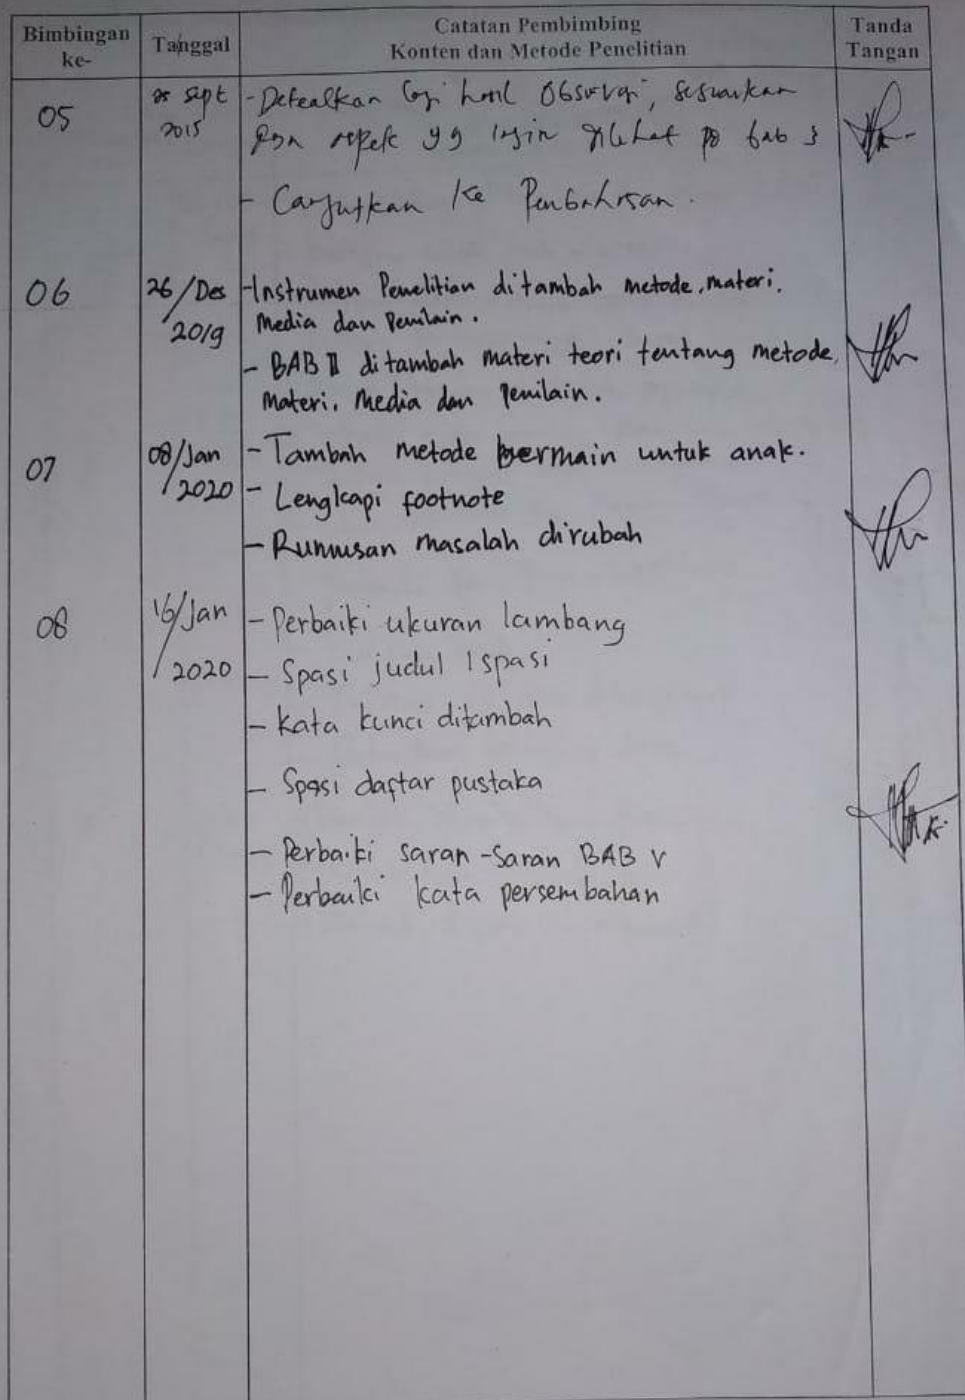 Bimbingan ke-
Tanggal
Catatan Pembimbing
Konten dan Metode Penelitian
Tanda Tangan
05
sept 2015
- Detealkan lagi hasil Observasi, sesuaikan
dgn aspek yg ingin dilihat pd bab 3
- Lanjutkan ke Pembahasan.
06
26/Des 2019
- Instrumen Penelitian ditambah metode, materi,
Media dan Penilain.
- BAB II ditambah materi teori tentang metode,
Materi, Media dan Penilain.
07
08/Jan 2020
- Tambah metode bermain untuk anak.
- Lengkapi footnote
- Rumusan masalah dirubah
08
16/Jan 2020
- Perbaiki ukuran lambang
- Spasi judul 1 spasi
- Kata kunci ditambah
- Spasi daftar pustaka
- Perbaiki saran-saran BAB V
- Perbaiki kata persembahan